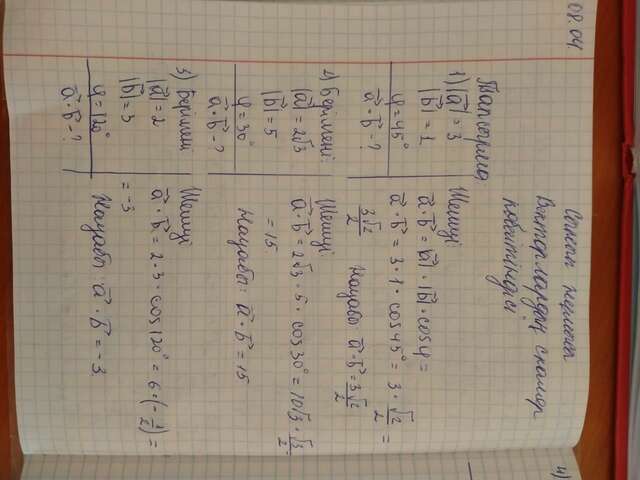 08.04.
Сынып жұмысы
Векторлардың скаляр
көбейтіндісі
Тапсырма
1) |a⃗| = 3
|b⃗| = 1
φ = 45°
a⃗ · b⃗ - ?
Шешуі
a⃗ · b⃗ = |a⃗| · |b⃗| · cos φ =
a⃗ · b⃗ = 3 · 1 · cos 45° = 3 · √2/2 =
3√2/2 Жауабы a⃗ · b⃗ = 3√2/2
2) Берілгені:
|a⃗| = 2√3
|b⃗| = 5
φ = 30°
a⃗ · b⃗ - ?
Шешуі
a⃗ · b⃗ = 2√3 · 5 · cos 30° = 10√3 · √3/2
= 15
Жауабы: a⃗ · b⃗ = 15
3) Берілгені
|a⃗| = 2
|b⃗| = 3
φ = 120°
a⃗ · b⃗ - ?
Шешуі
a⃗ · b⃗ = 2 · 3 · cos 120° = 6 · (-1/2) =
= -3
Жауабы a⃗ · b⃗ = -3
4)